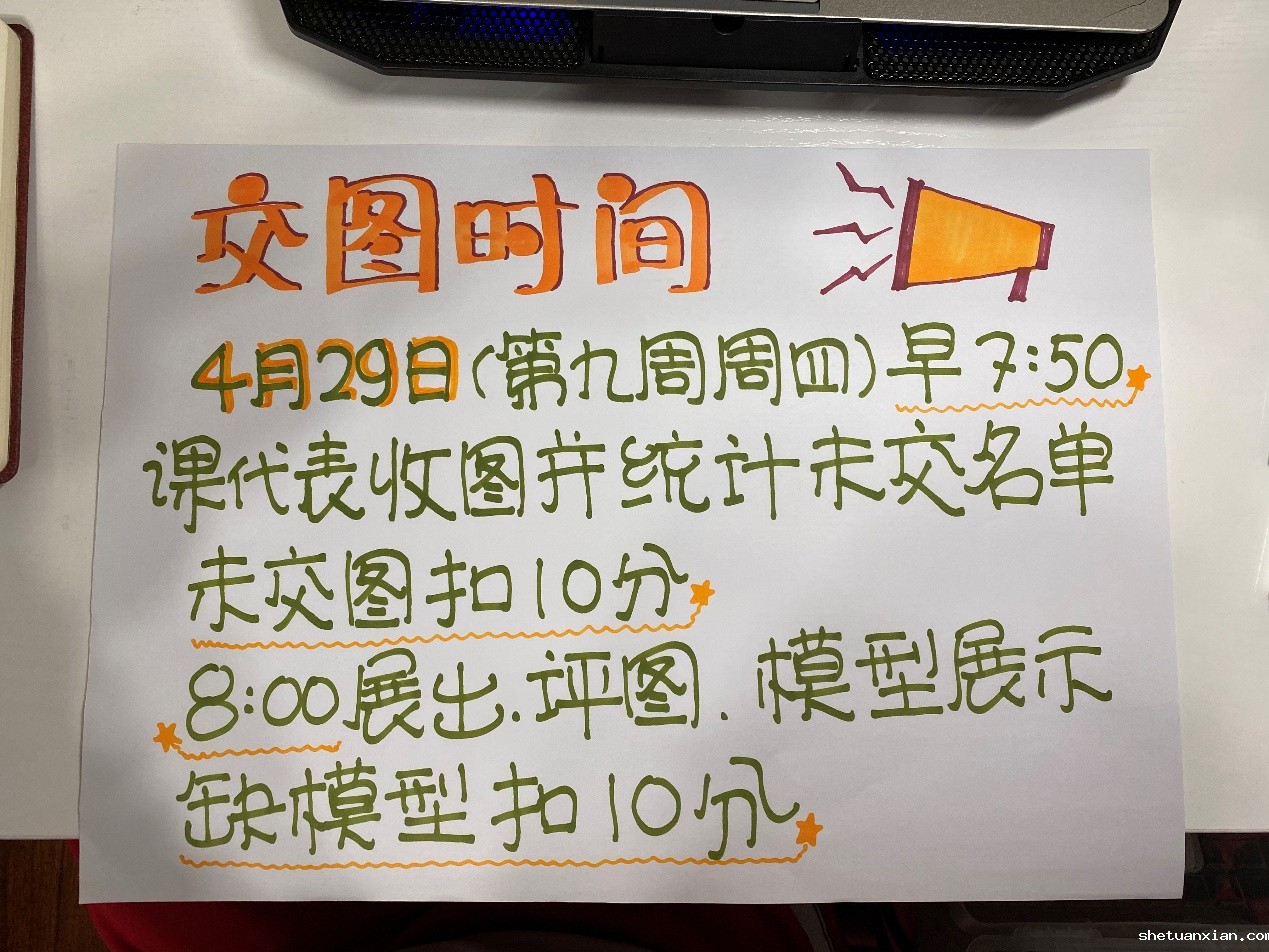 交图时间
4月29日(第九周周四)早7:50
课代表收图并统计未交名单
未交图扣10分
8:00展出.评图.模型展示
缺模型扣10分
shetuanxian.com